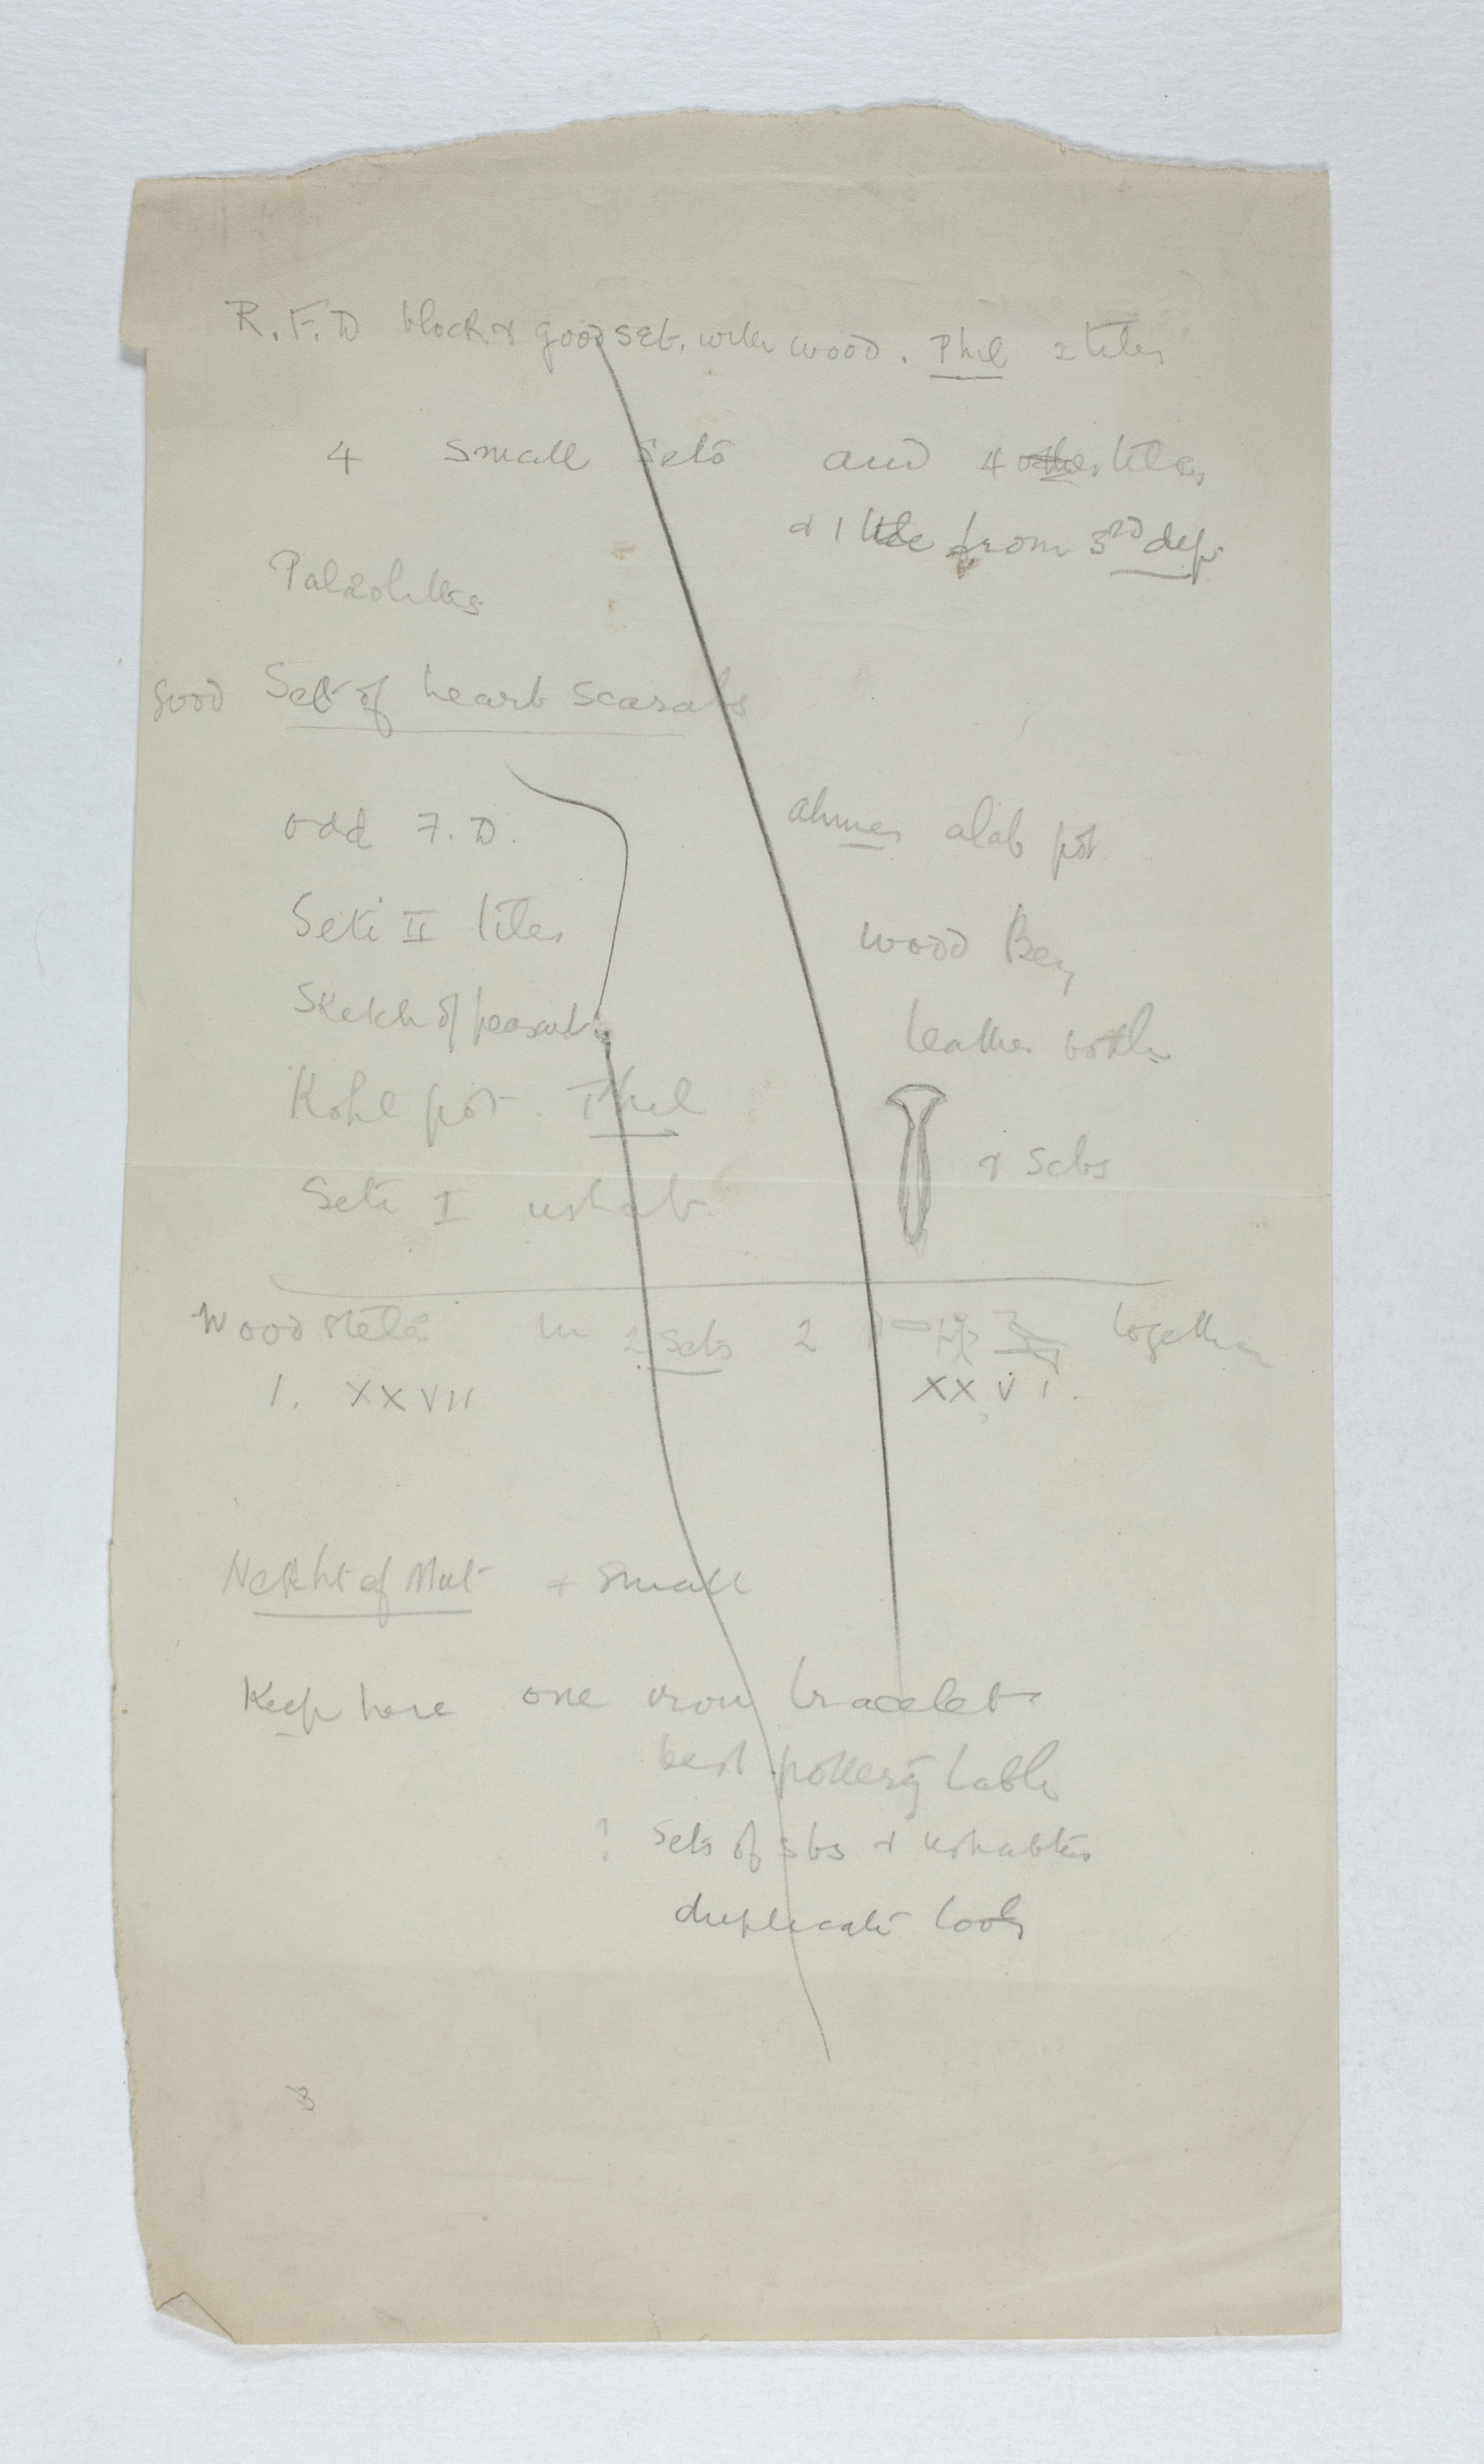 R.F.D block & good set, with wood. Phil 2 tiles
4 small sets and 4 other tiles
& 1 tile from 3rd dep.
Palaeoliths
Good Set of heart scarabs
odd F.D. ahmes alab pot
Seti II tiles wood Bey
Sketch of peasant leather bottle
Kohl pot. Phil
Seti I ushab & sebs
Wood stela in 2 sets 2 together
1. XXVII XXVI.
Nekht of Mut & small
Keep here one iron bracelet
best pottery table
? Sets of sbs & ushabtis
duplicate tools
3